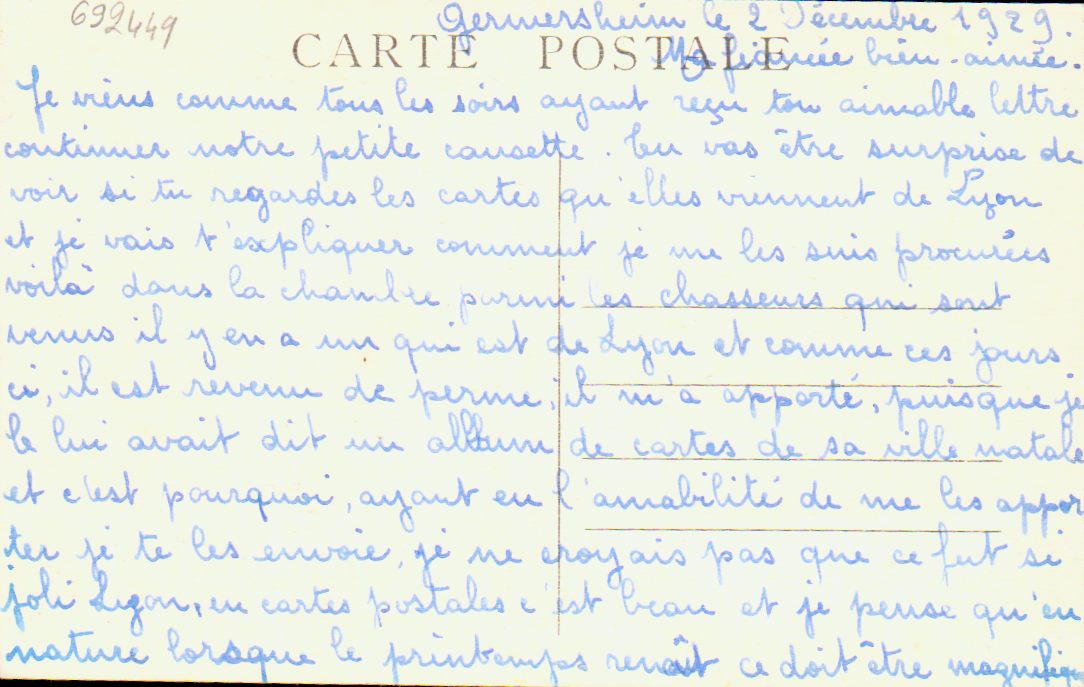 699449
Germersheim le 2 Décembre 1929.
CARTE POSTALE
Ma fiancée bien-aimée.
Je viens comme tous les soirs ayant reçu ton aimable lettre
continuer notre petite causette. Tu vas être surprise de
voir si tu regardes les cartes qu'elles viennent de Lyon
et je vais t'expliquer comment je me les suis procurées
voilà dans la chambre parmi les chasseurs qui sont
venus il y en a un qui est de Lyon et comme ces jours
ci, il est revenu de perme, il m'a apporté, puisque je
le lui avait dit un album de cartes de sa ville natale
et c'est pourquoi, ayant eu l'amabilité de me les appor
ter je te les envoie, je ne croyais pas que ce fut si
joli Lyon, en cartes postales c'est beau et je pense qu'en
nature lorsque le printemps renaît ce doit être magnifique